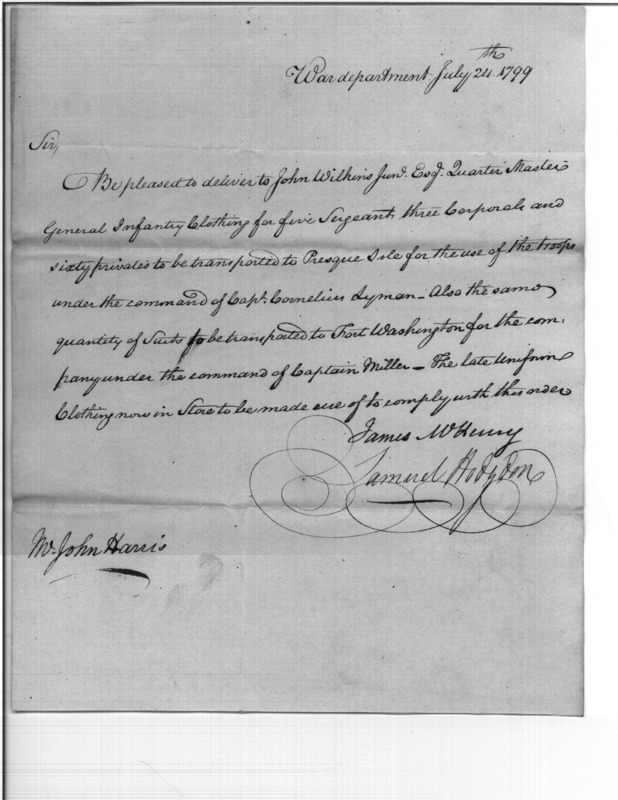 War department July 24th 1799
Sir,
Be pleased to deliver to John Wilkins Junr. Esqr. Quarter Master
General Infantry Clothing for five Sergeants three Corporals and
sixty privates to be transported to Presque Isle for the use of the troops
under the command of Capt. Cornelius Lyman – Also the same
quantity of Suits to be transported to Fort Washington for the com:
pany under the command of Captain Miller – The late Uniform
Clothing now in Store to be made use of to comply with this order
James McHenry
Samuel Hodgdon
Mr. John Harris